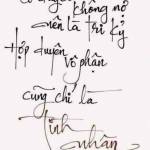 không nở
nên là tri kỷ
Hợp duyên
vô phận
cũng chỉ là
tình nhân